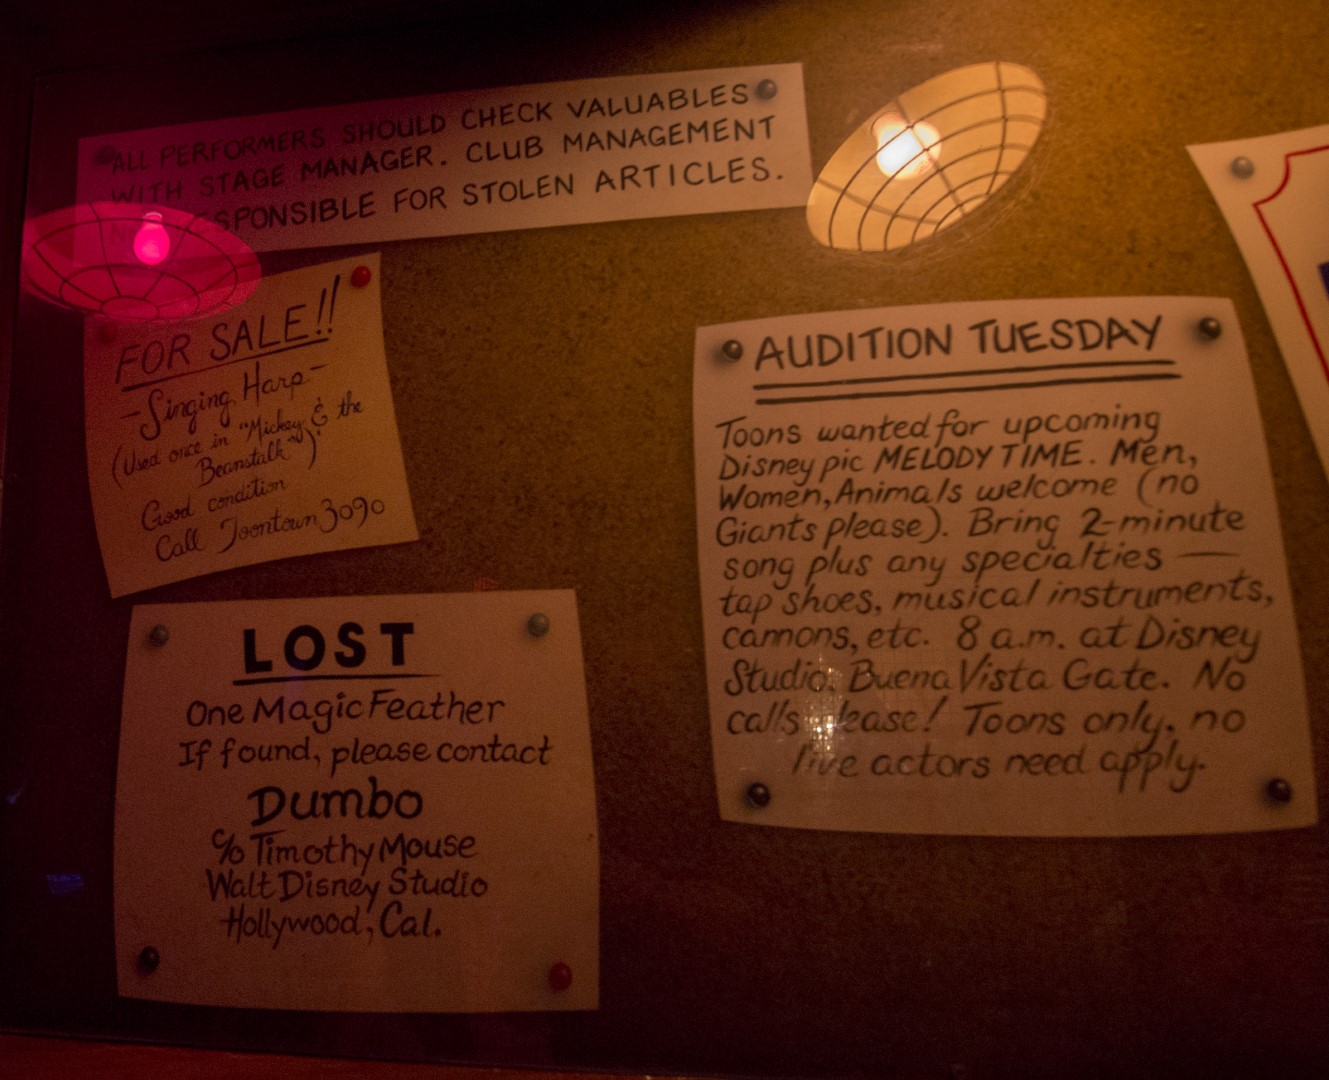 ALL PERFORMERS SHOULD CHECK VALUABLES
WITH STAGE MANAGER. CLUB MANAGEMENT
RESPONSIBLE FOR STOLEN ARTICLES.
FOR SALE!!
-Singing Harp-
(Used once in "Mickey & the
Beanstalk")
Good condition
Call Toontown 3090
LOST
One Magic Feather
If found, please contact
Dumbo
c/o Timothy Mouse
Walt Disney Studio
Hollywood, Cal.
AUDITION TUESDAY
Toons wanted for upcoming
Disney pic MELODY TIME. Men,
Women, Animals welcome (no
Giants please). Bring 2-minute
song plus any specialties —
tap shoes, musical instruments,
cannons, etc. 8 a.m. at Disney
Studio, Buena Vista Gate. No
calls please! Toons only, no
live actors need apply.